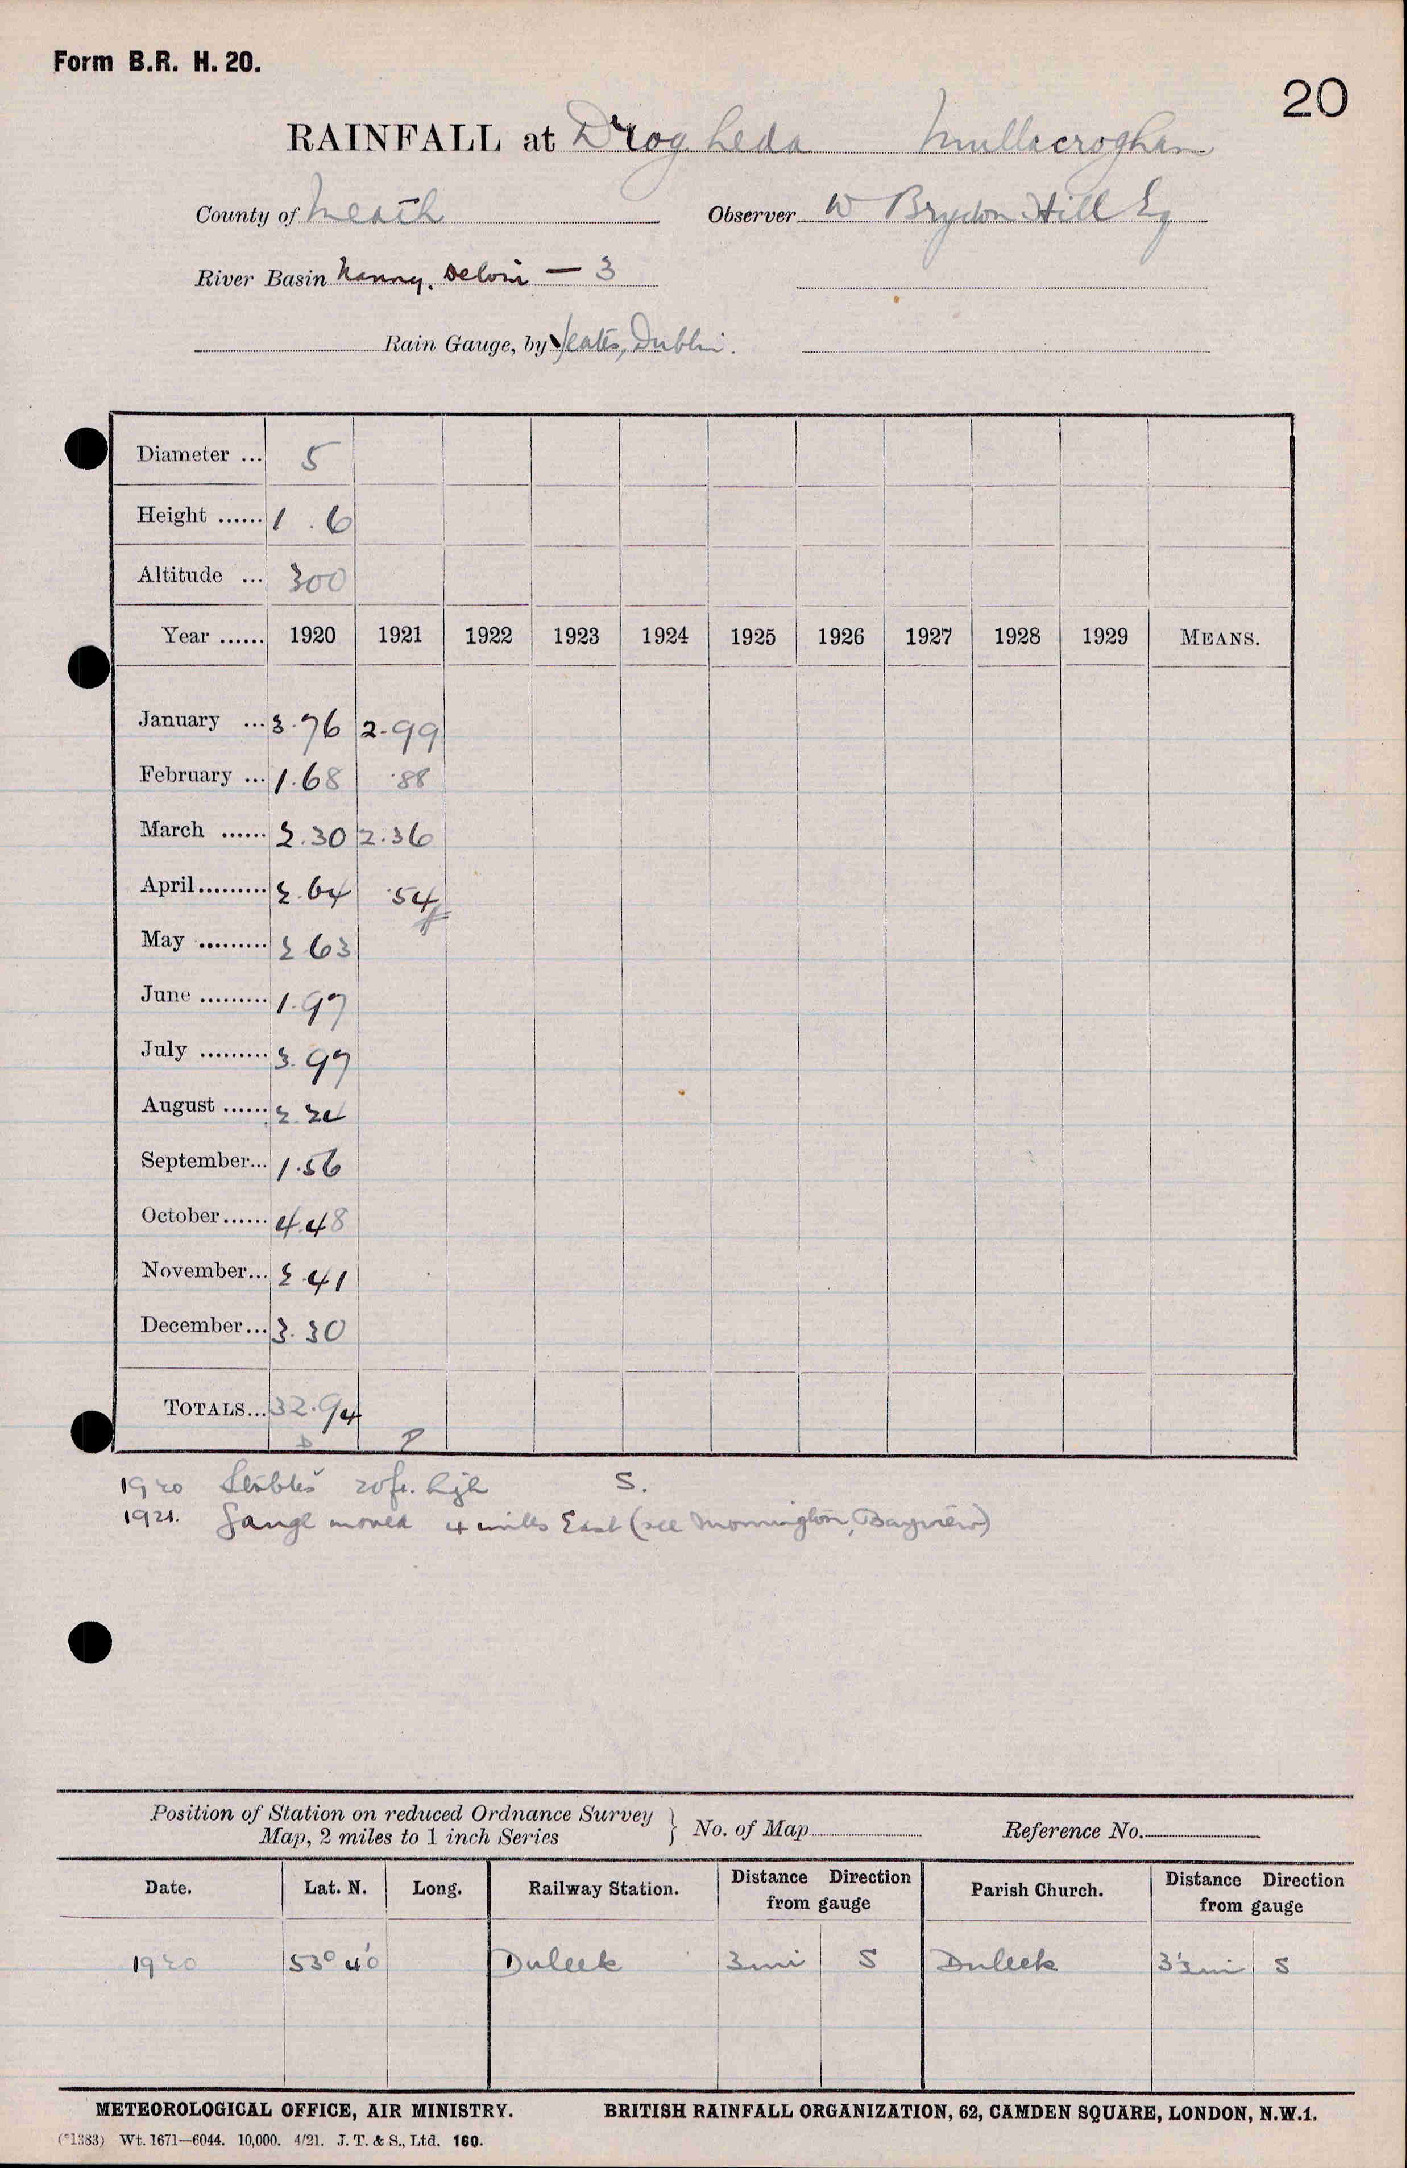 Form B.R. H. 20.
20
RAINFALL at Drogheda Mullacroghan
County of Meath Observer W Brydon Hill Esq
River Basin Nanny, Delvin — 3
Rain Gauge, by Yeates, Dublin.
Diameter ... 5
Height ...... 1 . 6
Altitude ... 300
Year ...... 1920 1921 1922 1923 1924 1925 1926 1927 1928 1929 MEANS.
January ... 3.76 2.99
February ... 1.68 .88
March ...... 2.30 2.36
April......... 2.64 .54
May ......... 2 63
June ......... 1.97
July ......... 3.97
August ...... 2.24
September... 1.56
October...... 4.48
November... 2.41
December... 3.30
TOTALS... 32.94
D P
1920 Stables 20ft. high S.
1921. Gauge moved 4 miles East (see Mornington, Bayview)
Position of Station on reduced Ordnance Survey
Map, 2 miles to 1 inch Series } No. of Map Reference No.
Date. Lat. N. Long. Railway Station. Distance Direction from gauge Parish Church. Distance Direction from gauge
1920 53° 40' Duleek 3 mi S Duleek 3 mi S
METEOROLOGICAL OFFICE, AIR MINISTRY. BRITISH RAINFALL ORGANIZATION, 62, CAMDEN SQUARE, LONDON, N.W.1.
(*1383) Wt. 1671—6044. 10,000. 4/21. J. T. & S., Ltd. 160.